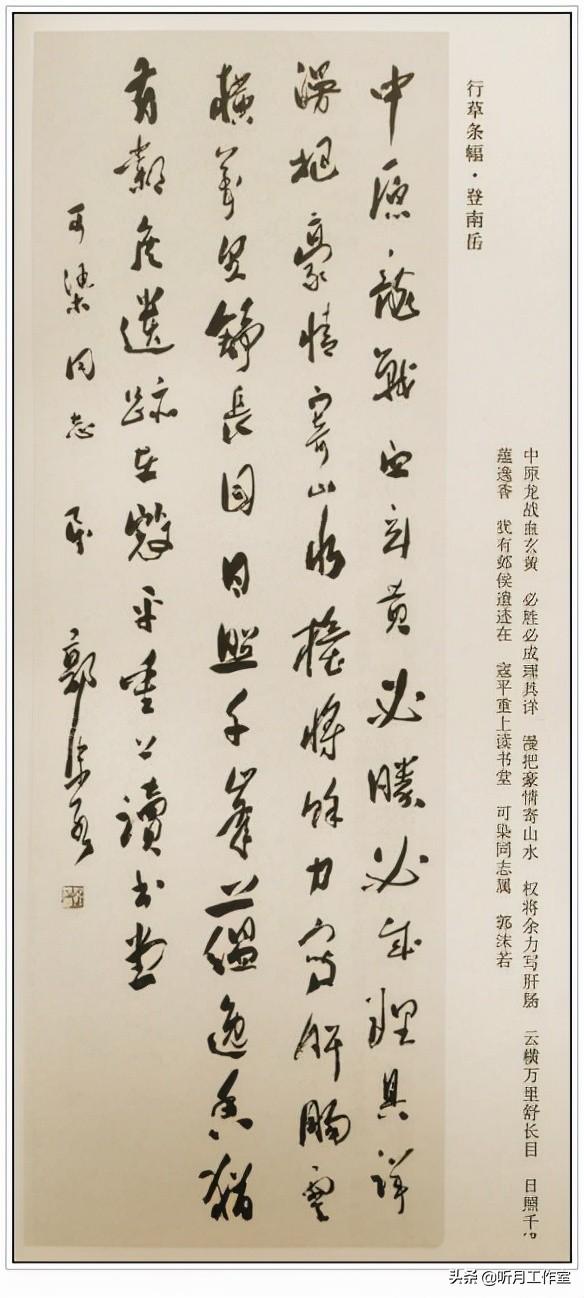 行草条幅·登南岳
中原龙战血玄黄 必胜必成理其详 漫把豪情寄山水 权将余力写肝肠 云横万里舒长目 日照千
蕴逸香 犹有邺侯遗迹在 寇平重上读书堂 可染同志属 郭沫若
中原龍戰血玄黄必勝必成理具詳
漫把豪情寄山水權將餘力寫肝腸雲
橫萬里舒長目日照千峯上蘊逸香猶
有鄴侯遺跡在寇平重上讀書堂
可染同志屬 郭沫若
头条 @听月工作室